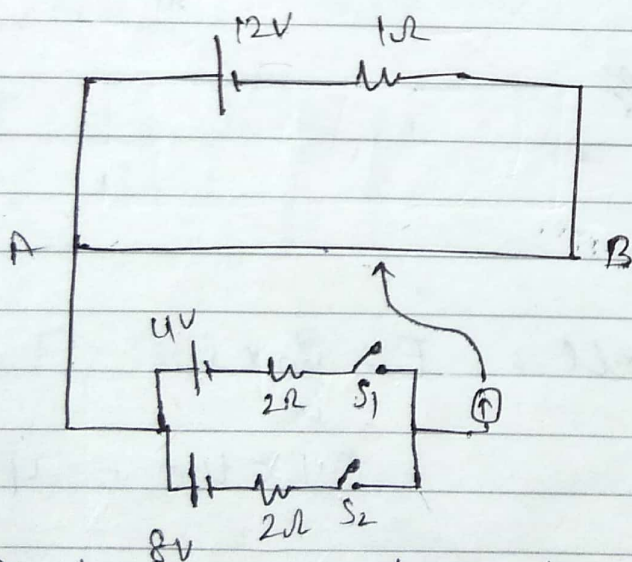 12V 1Ω
A B
4V
2Ω S1
2Ω S2
8V